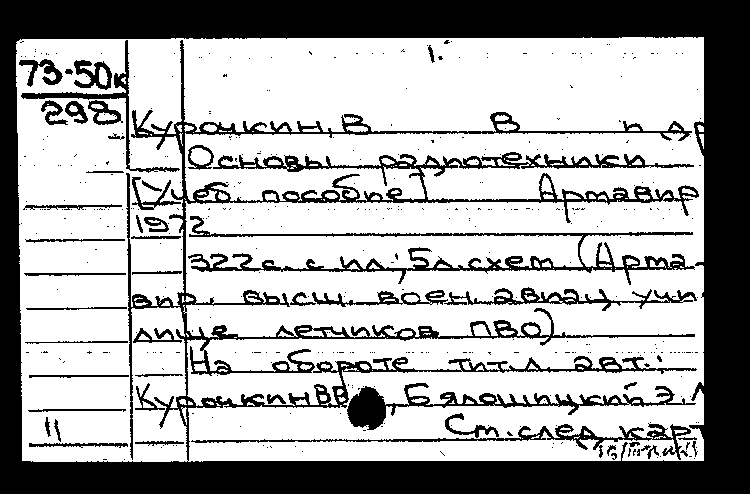 1.
73-50к
298
Курочкин, В В и др
Основы радиотехники.
[Учеб. пособие] Армавир
1972
322 с. с ил.; 5 л. схем (Арма-
вир. высш. воен. авиац. учи-
лище летчиков ПВО).
На обороте тит. л. авт.:
Курочкин В В, Бялошицкий Э. Л
11 См. след. карт